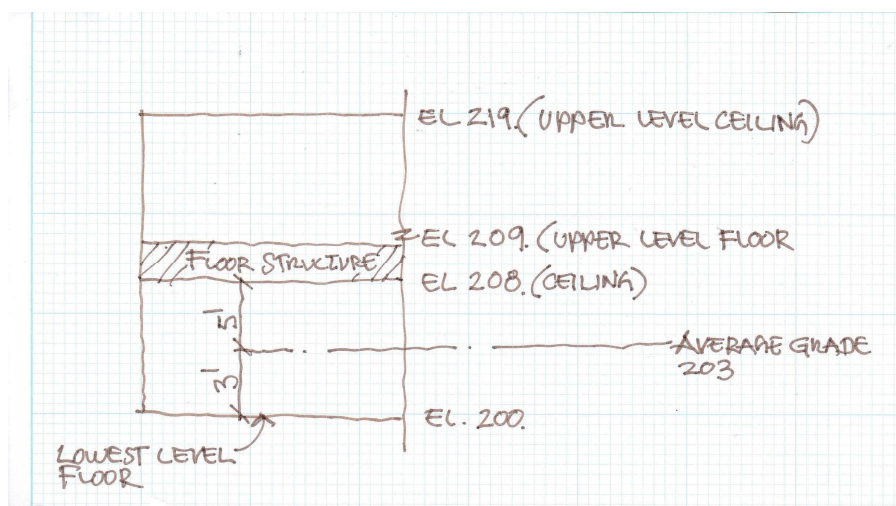 EL 219. (UPPER LEVEL CEILING)
EL 209. (UPPER LEVEL FLOOR
FLOOR STRUCTURE
EL 208. (CEILING)
5'
AVERAGE GRADE
203
3'
EL. 200.
LOWEST LEVEL
FLOOR